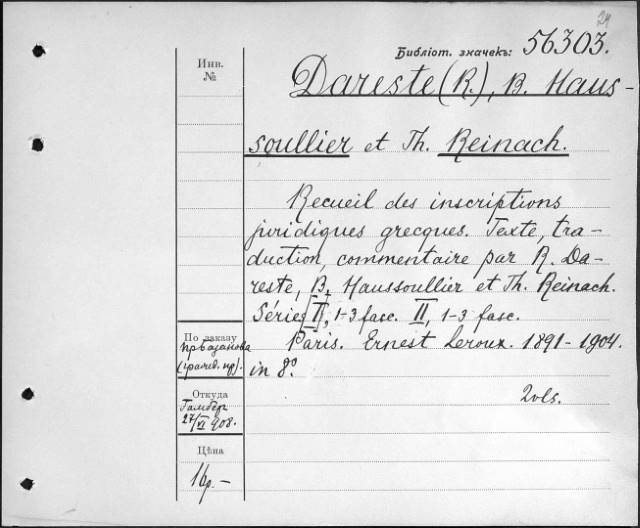 24
Библіот. значекъ: 56303.
Инв.
№
Dareste (R.), B. Haus-
soullier et Th. Reinach.
Recueil des inscriptions
juridiques grecques. Texte, tra-
duction, commentaire par R. Da-
reste, B. Haussoullier et Th. Reinach.
Séries II, 1-3 fasc. II, 1-3 fasc.
По заказу
Paris. Ernest Leroux. 1891-1904.
in 8°.
Откуда
2 vls.
27/VI 908.
Цѣна
16р.-